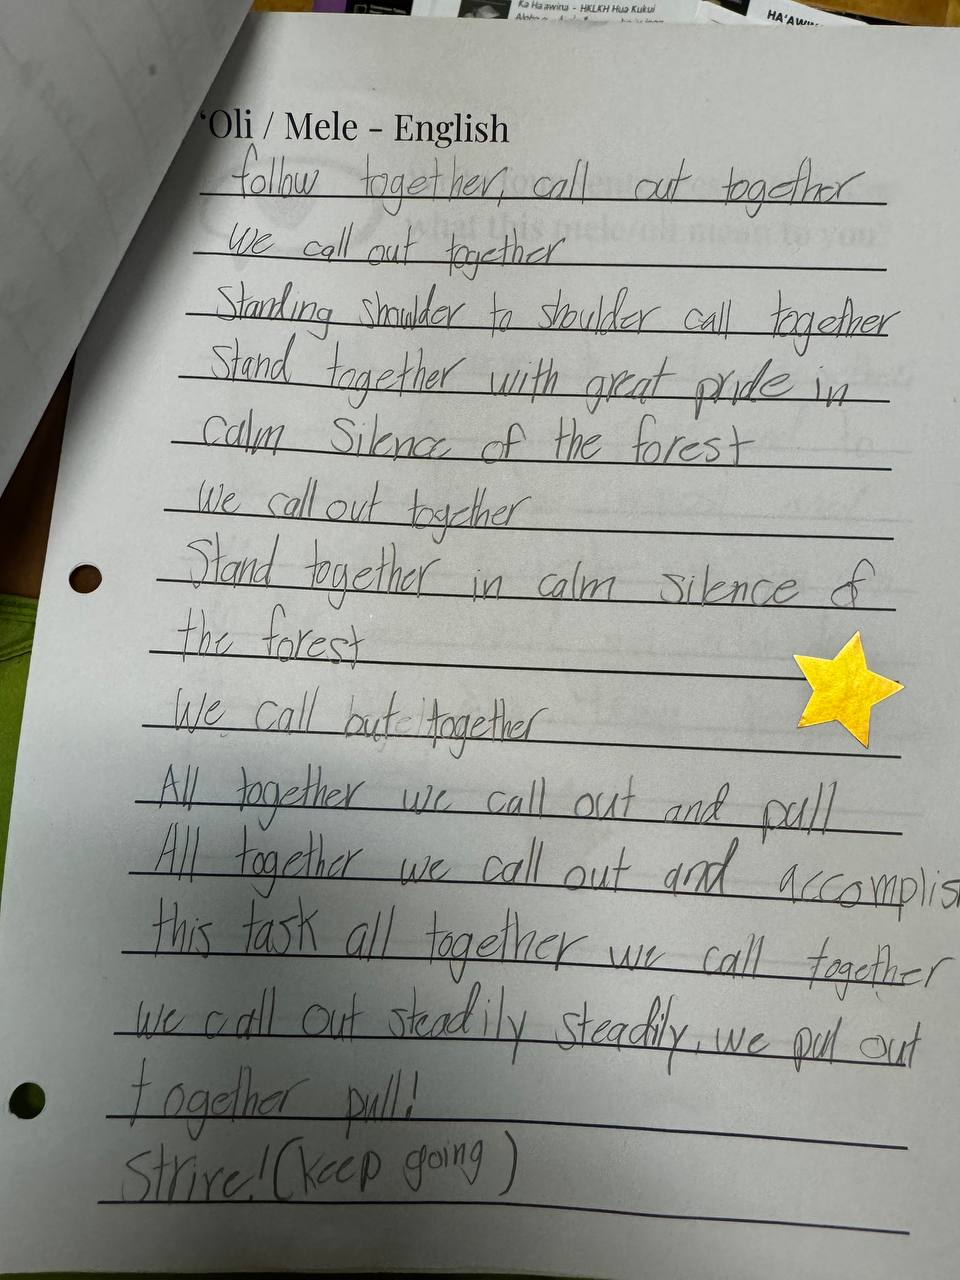 Ka Ha awina - HKLKH Hua Kukui
HA'AWI
'Oli / Mele - English
follow together, call out together
We call out together
Standing shoulder to shoulder call together
Stand together with great pride in
calm silence of the forest
We call out together
Stand together in calm silence of
the forest
We call out together
All together we call out and pull
All together we call out and accomplis
this task all together we call together
we call out steadily steadily, we pul out
together pull!
Strive! (keep going)